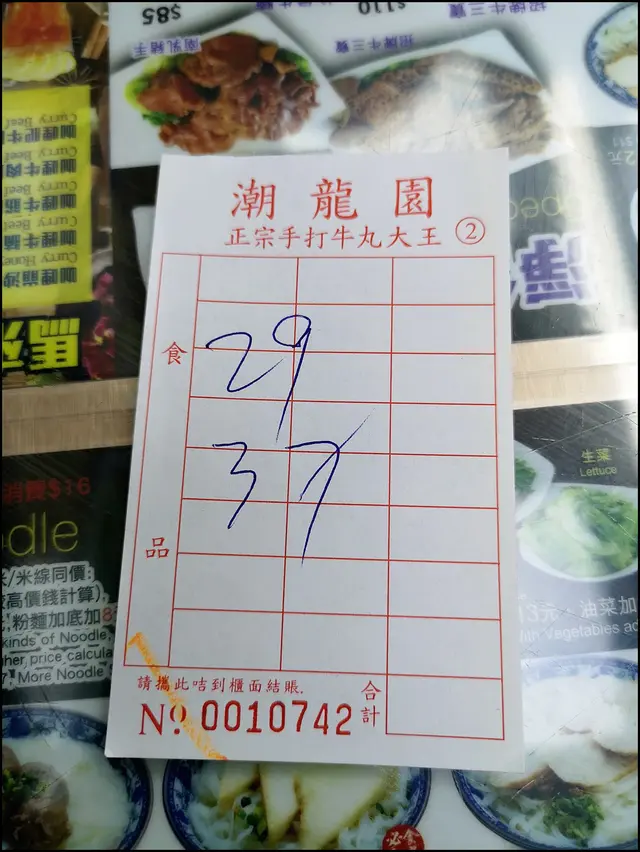 $85
$110
南乳豬手
招牌牛三寶
招牌牛三寶
Curry Beef
Curry Beef
Curry Beef
Curry Beef
潮龍園
正宗手打牛丸大王 ②
食
品
29
37
請攜此咭到櫃面結賬.
合計
No. 0010742
消費$16
odle
米/米線同價:
高價錢計算),
,粉麵加底加8
kinds of Noodle,
her price calcula
More Noodle
生菜
Lettuce
13元
油菜加
With Vegetables ad